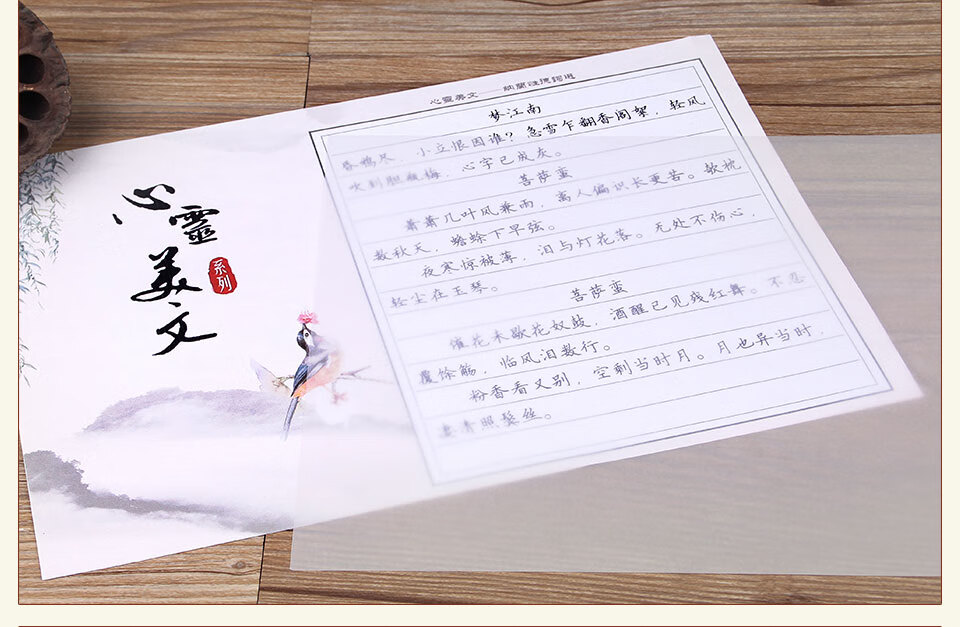 心靈美文
系列
心靈美文——納蘭性德詞選
梦江南
昏鸦尽，小立恨因谁？急雪乍翻香阁絮，轻风
吹到胆瓶梅，心字已成灰。
菩萨蛮
萧萧几叶风兼雨，离人偏识长更苦。欹枕
数秋天，蟾蜍下早弦。
夜寒惊被薄，泪与灯花落。无处不伤心，
轻尘在玉琴。
菩萨蛮
催花未歇花奴鼓，酒醒已见残红舞。不忍
覆馀觞，临风泪数行。
粉香看又别，空剩当时月。月也异当时，
凄清照鬓丝。